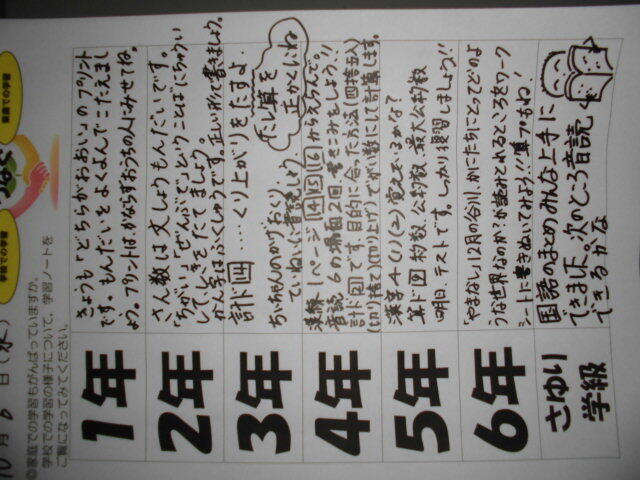 10月6日(水)
学校での学習
つなぐ
家庭での学習
◎家庭での学習もがんばっていますか。
学校での学習の様子について、学習ノートを
ご覧になってみてください。
1年
きょうも「どちらがおおい」のプリント
です。もんだいをよくよんでこたえまし
ょう。プリントはかならずおうちの人にみせてね。
2年
さん数は文しょうもんだいです。
「ちがい」「ぜんぶで」ということばにちゅうい
して、しきをたてましょう。
かん字はふくしゅうです。正しい形で書きましょう。
3年
計ド四…くり上がりをたすよ。
たし算を
正かくにね
ちいちゃんのかげおくり
ていねいに音読しましょう
4年
漢練1ページ 14 15 16 からえらんで。
音読6の場面2回 書きこみをしよう!!
計ド図です。目的に合った方法(四捨五入)
(切り捨て)(切り上げ)でがい数にして計算します。
5年
漢字4(1)(2)覚えているかな?
算ド図 倍数、公約数、最大公約数
明日、テストです。しっかり復習しましょう!!
6年
「やまなし」12月の谷川、かにたちにとってどのよ
うな世界なのか?が読みとれるところをワーク
シートに書きぬいてみよう!!
さゆり
学級
国語のまとめみんな上手に
できました。次のところ音読
できるかな